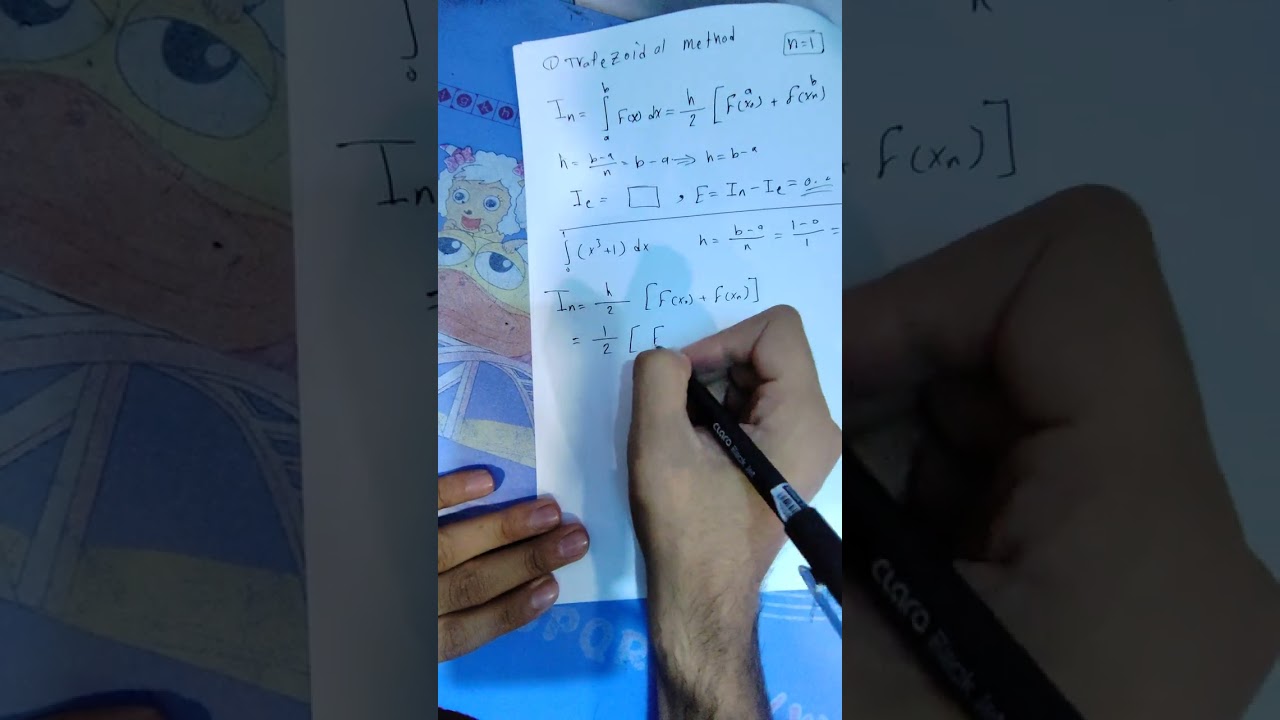 ① Trapezoidal method n=1
Iₙ = ∫ₐᵇ F(x) dx = h/2 [F(x₀)ᵃ + f(xₙ)ᵇ
h = b-a/n = b-a ⇒ h = b-a
Iₑ = □ , E = Iₙ - Iₑ = 0..
∫₀¹ (x³+1) dx h = b-a/n = 1-0/1 =
Iₙ = h/2 [F(x₀) + f(xₙ)]
= 1/2 [ F
CLARO Black Jet